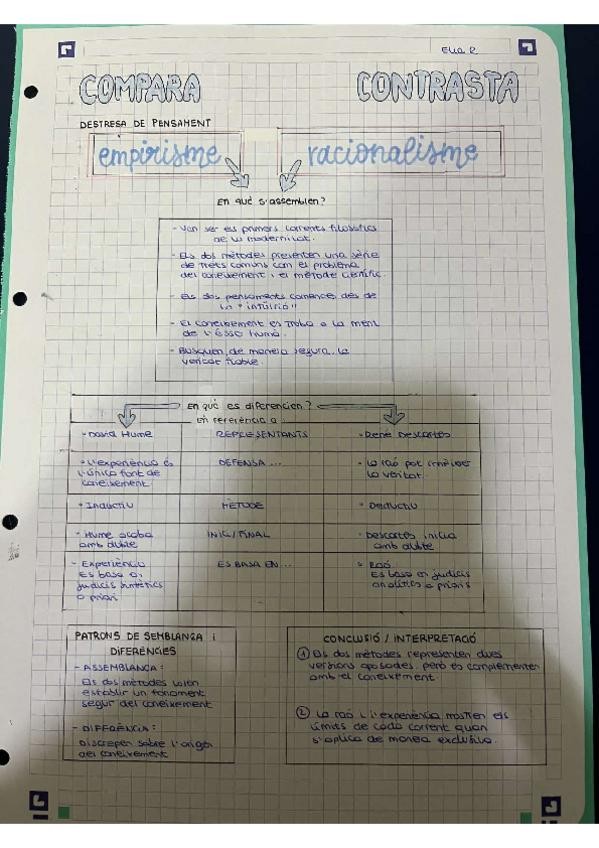 Elia R
COMPARA CONTRASTA
DESTRESA DE PENSAMENT
empirisme racionalisme
En què s'assemblen?
- Van ser els primers corrents filosòfics
de la modernitat.
- Els dos mètodes presenten una sèrie
de trets comuns com el problema
del coneixement i el mètode científic.
- Els dos pensaments comencen des de
la "intuïció"
- El coneixement es troba a la ment
de l'ésser humà.
- Busquen de manera segura la
veritat fiable.
En què es diferencien?
En referència a:
- David Hume REPRESENTANTS - René Descartes
- L'experiència és
l'única font de
coneixement.
DEFENSA...
- La raó pot
la veritat.
- Inductiu MÈTODE - Deductiu
- Hume acaba
amb dubte
INICI/FINAL
- Descartes inicia
amb dubte
- Experiència
Es basa en
judicis sintètics
a priori
ES BASA EN...
- Raó
Es basa en judicis
analítics a prioris
PATRONS DE SEMBLANÇA i
DIFERÈNCIES
- ASSEMBLANÇA:
Els dos mètodes volen
establir un fonament
segur del coneixement
- DIFERÈNCIA:
Discrepen sobre l'origen
del coneixement
CONCLUSIÓ / INTERPRETACIÓ
① Els dos mètodes representen dues
versions oposades, però es complementen
amb el coneixement.
② La raó i l'experiència mostren els
límits de cada corrent quan
s'aplica de manera exclusiva.